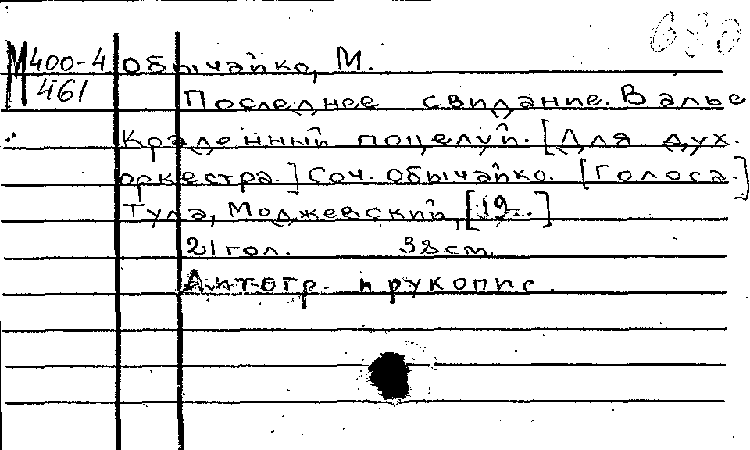 680
М 400-4 Обычайко, М.
461
Последнее свидание. Вальс
Краденный поцелуй. [Для дух.
оркестра.] Соч. Обычайко. [Голоса.]
Тула, Моджевский, [19..]
21 гол. 38 см.
Литогр. и рукопис.